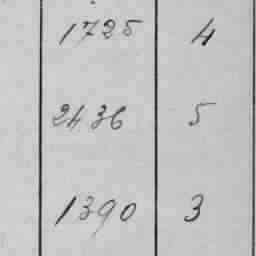 1725 4
2436 5
1390 3